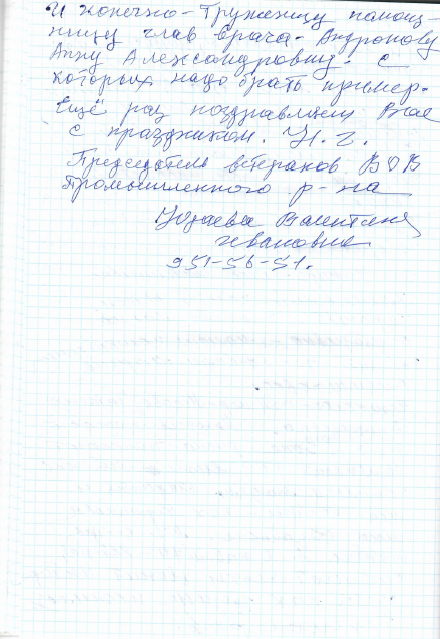 И конечно - Труженицу помощ-
ницу глав врача - Андронову
Анну Александровну - с
которых надо брать пример.
Ещё раз поздравляем Вас
с праздником. Н. г.
Председатель ветеранов ВОВ
Промышленного р-на
Валентина
Ивановна
951-56-51.